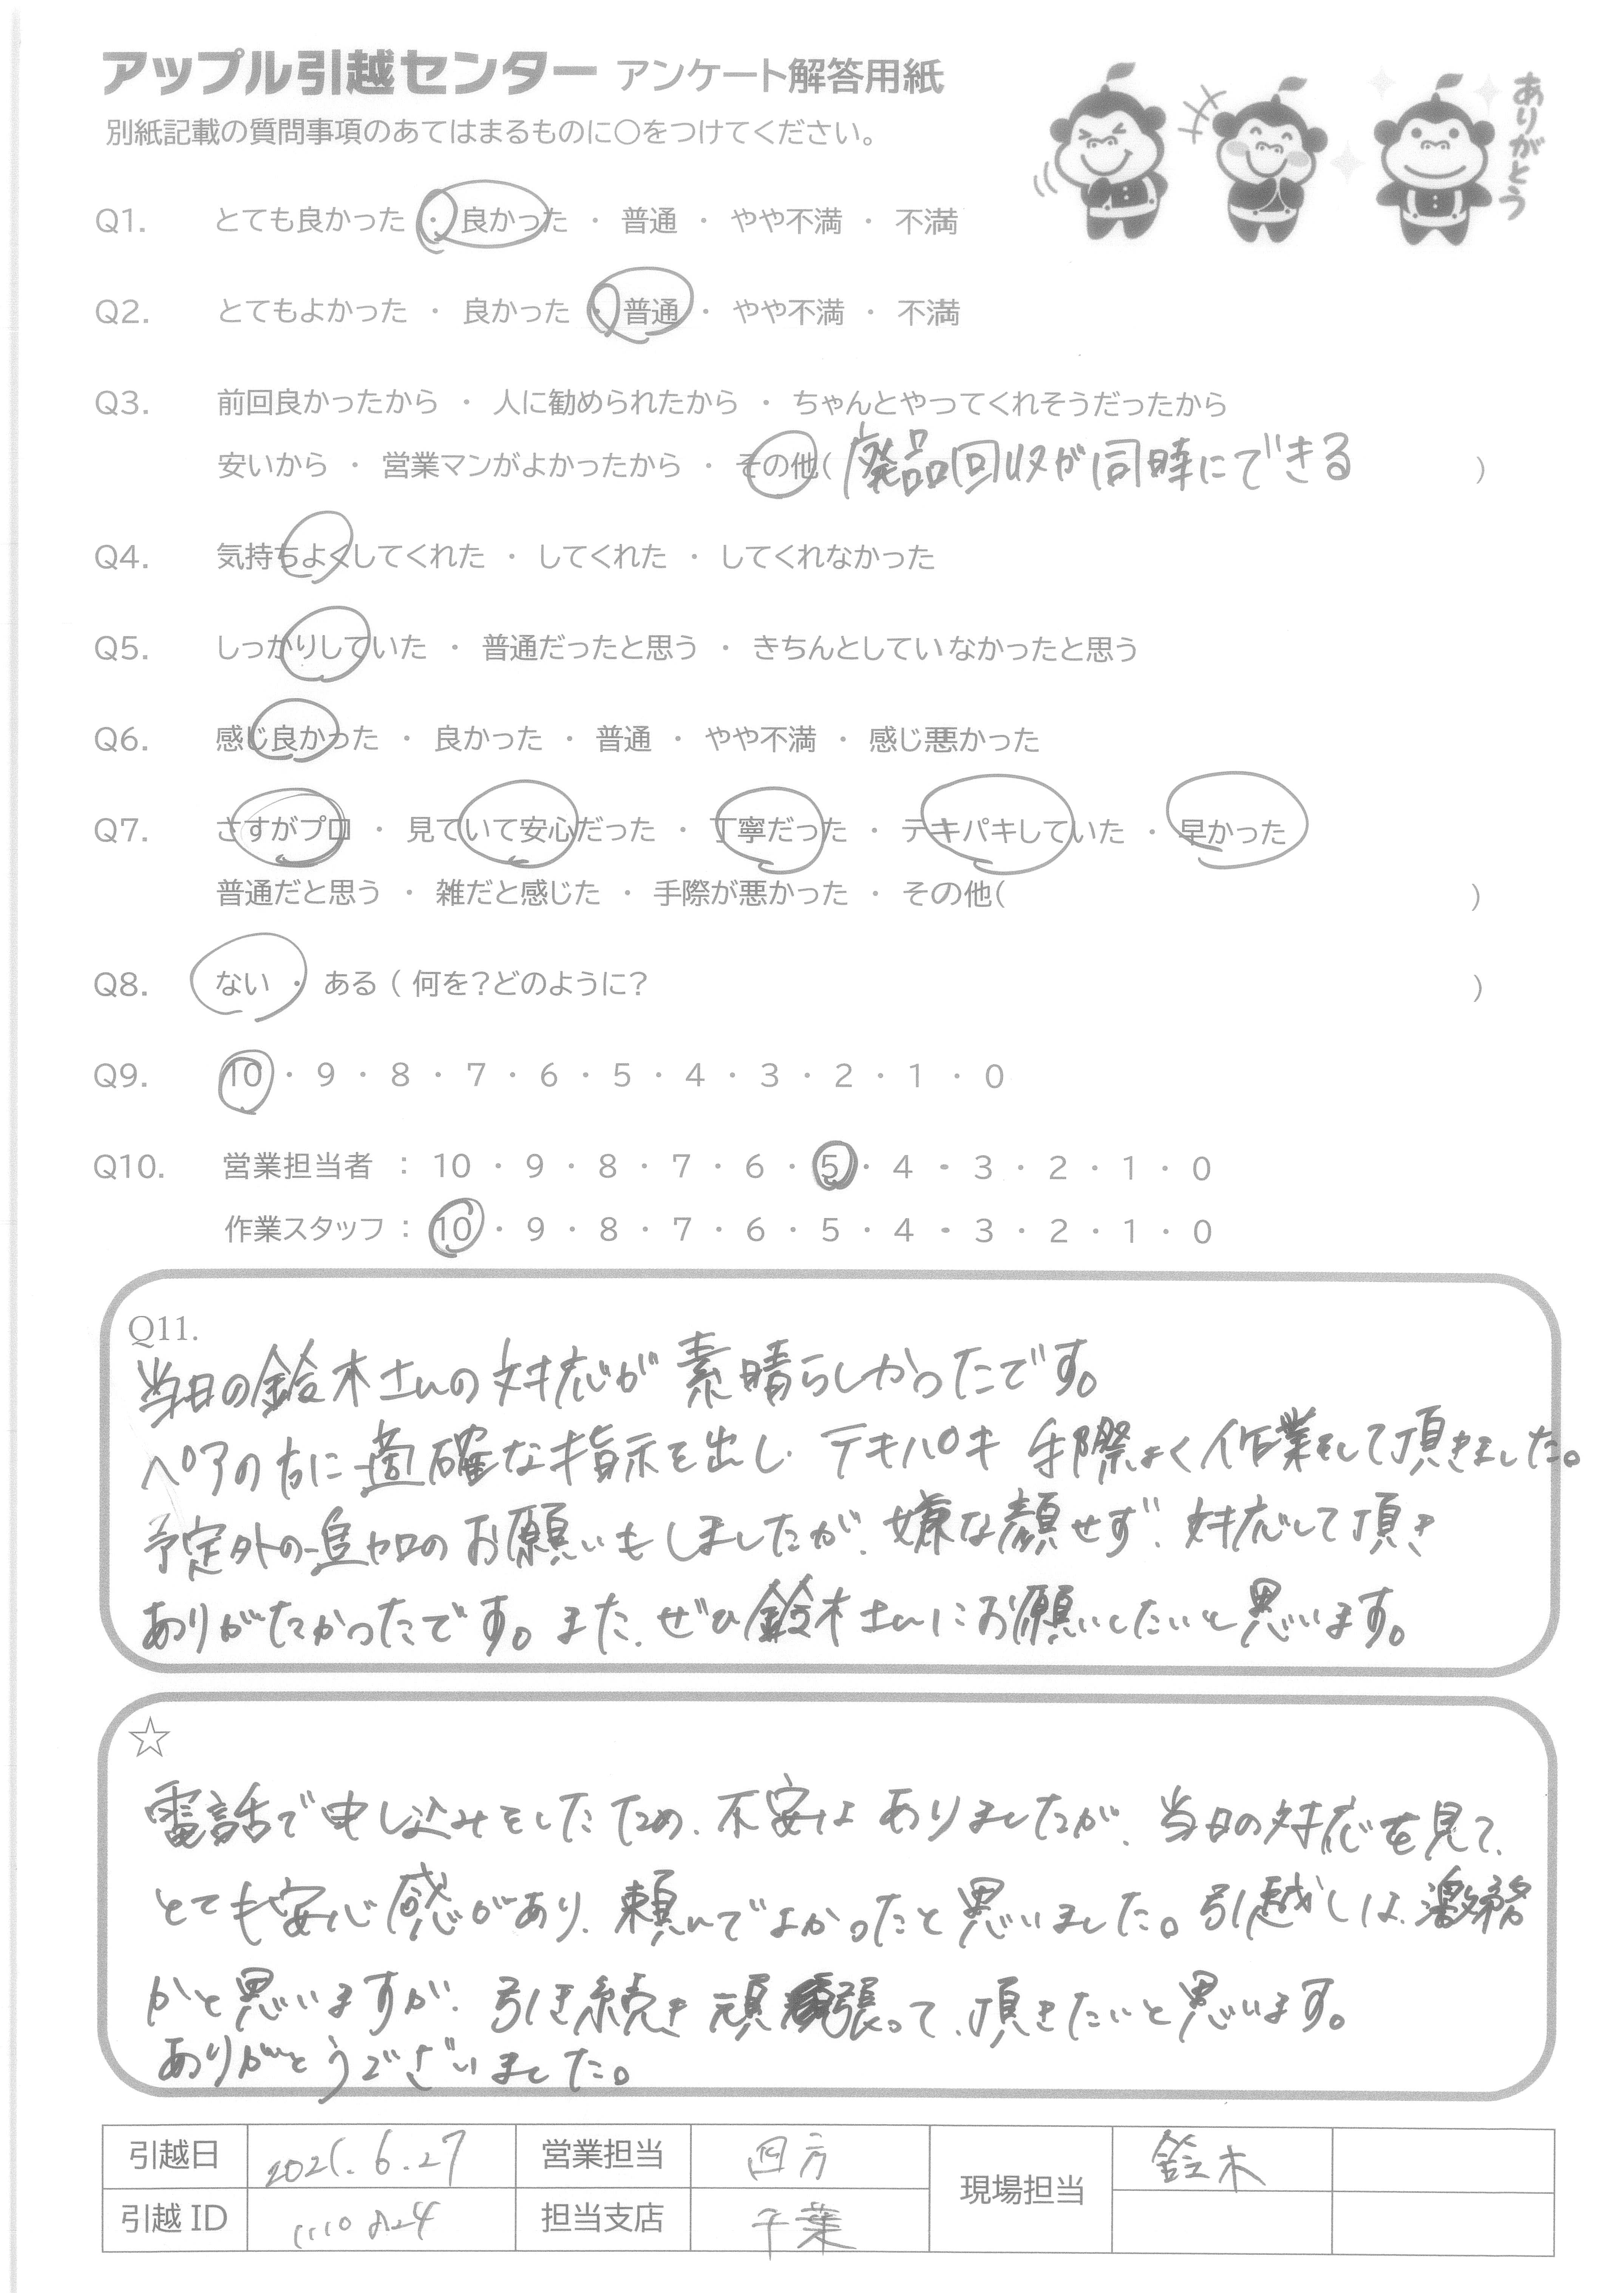 アップル引越センター アンケート解答用紙
ありがとう
別紙記載の質問事項のあてはまるものに○をつけてください。
Q1. とても良かった ・ 良かった ・ 普通 ・ やや不満 ・ 不満
Q2. とてもよかった ・ 良かった ・ 普通 ・ やや不満 ・ 不満
Q3. 前回良かったから ・ 人に勧められたから ・ ちゃんとやってくれそうだったから
安いから ・ 営業マンがよかったから ・ その他( 廃品回収が同時にできる )
Q4. 気持ちよくしてくれた ・ してくれた ・ してくれなかった
Q5. しっかりしていた ・ 普通だったと思う ・ きちんとしていなかったと思う
Q6. 感じ良かった ・ 良かった ・ 普通 ・ やや不満 ・ 感じ悪かった
Q7. さすがプロ ・ 見ていて安心だった ・ 丁寧だった ・ テキパキしていた ・ 早かった
普通だと思う ・ 雑だと感じた ・ 手際が悪かった ・ その他( )
Q8. ない ・ ある ( 何を?どのように? )
Q9. 10 ・ 9 ・ 8 ・ 7 ・ 6 ・ 5 ・ 4 ・ 3 ・ 2 ・ 1 ・ 0
Q10. 営業担当者 : 10 ・ 9 ・ 8 ・ 7 ・ 6 ・ 5 ・ 4 ・ 3 ・ 2 ・ 1 ・ 0
作業スタッフ : 10 ・ 9 ・ 8 ・ 7 ・ 6 ・ 5 ・ 4 ・ 3 ・ 2 ・ 1 ・ 0
Q11.
当日の鈴木さんの対応が素晴らしかったです。
ペアの方に適確な指示を出し、テキパキ手際よく作業をして頂きました。
予定外の追加のお願いもしましたが、嫌な顔せず、対応して頂き
ありがたかったです。また、ぜひ鈴木さんにお願いしたいと思います。
☆
電話で申し込みをしたため、不安はありましたが、当日の対応を見て、
とても安心感があり、頼んでよかったと思いました。引越しは、激務
かと思いますが、引き続き頑張って、頂きたいと思います。
ありがとうございました。
引越日 2021.6.27 営業担当 四方 現場担当 鈴木
引越ID 担当支店 千葉